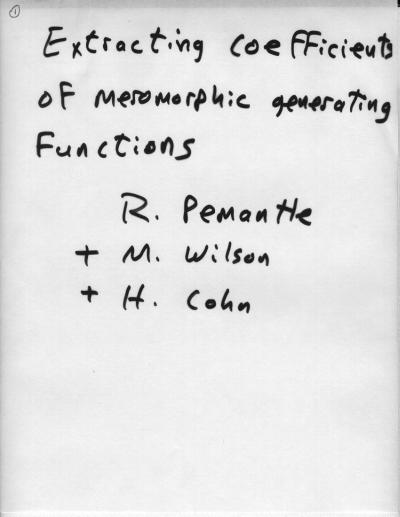 ①
Extracting coefficients
of meromorphic generating
Functions
R. Pemantle
+ M. Wilson
+ H. Cohn